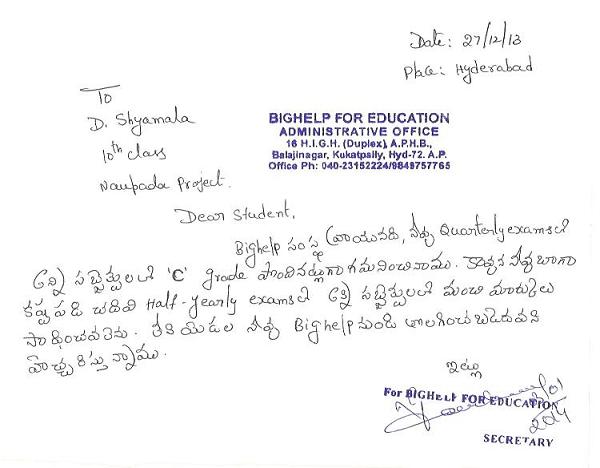 Date: 27/12/13
Place: Hyderabad
To
D. Shyamala
10th class
Naupada Project.
BIGHELP FOR EDUCATION
ADMINISTRATIVE OFFICE
16 H.I.G.H. (Duplex), A.P.H.B.,
Balajinagar, Kukatpally, Hyd-72. A.P.
Office Ph: 040-23152224/9849757765
Dear Student,
Bighelp సంస్థ వ్రాయునది, నీవు Quarterly exams లో
అన్ని సబ్జెక్టులలో 'C' grade పొందినట్లుగా గమనించినాము. కావున నీవు బాగా
కష్టపడి చదివి Half-yearly exams లో అన్ని సబ్జెక్టులలో మంచి మార్కులు
సాధించవలెను. లేకయెడల నీవు Bighelp నుండి తొలగించబడెదవని
హెచ్చరిస్తున్నాము.
ఇట్లు
For BIGHELP FOR EDUCATION
SECRETARY